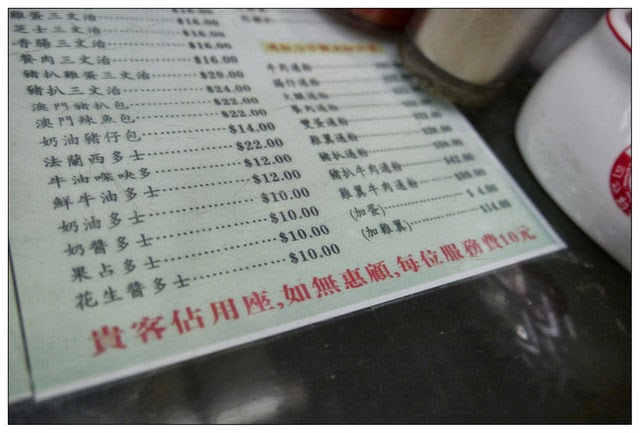 雞蛋三文治
芝士三文治 $16.00
香腸三文治 $16.00
餐肉三文治 $16.00
豬扒雞蛋三文治 $29.00
豬扒三文治 $24.00
澳門豬扒包 $22.00
澳門辣魚包 $22.00
奶油豬仔包 $14.00
法蘭西多士 $22.00
牛油咪吔多 $12.00
鮮牛油多士 $12.00
奶油多士 $10.00
奶醬多士 $10.00
果占多士 $10.00
花生醬多士 $10.00
牛肉通粉
腸仔通粉
火腿通粉
餐肉通粉
雙蛋通粉
雞翼通粉
豬扒通粉
豬扒牛肉通粉
雞翼牛肉通粉
(加蛋) $ 4.00
(加雞翼) $14.00
貴客佔用座,如無惠顧,每位服務費10元